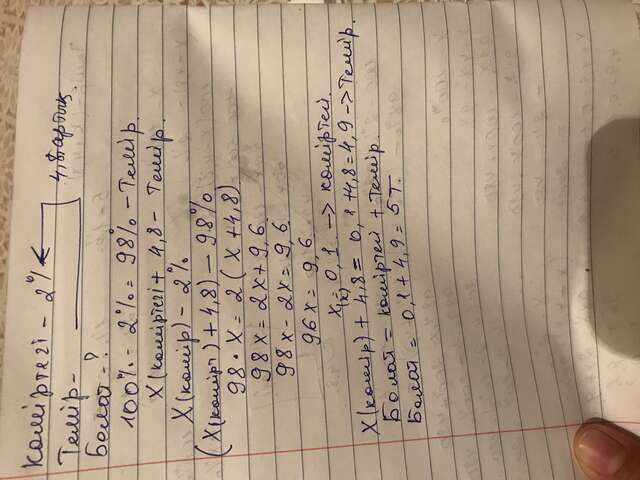 Көміртегі - 2%
Темір - 4,8 артық.
Болат - ?
100% - 2% = 98% - Темір.
X (көміртегі) + 4,8 - Темір.
X (көмір) - 2%
(X (көмірті) + 4,8) - 98%
98 • X = 2 (X + 4,8)
98X = 2X + 9,6
98X - 2X = 9,6
96X = 9,6
X = 0,1 -> көміртегі.
X (көмір) + 4,8 = 0,1 + 4,8 = 4,9 -> Темір.
Болат = көміртегі + Темір.
Болат = 0,1 + 4,9 = 5 Т.